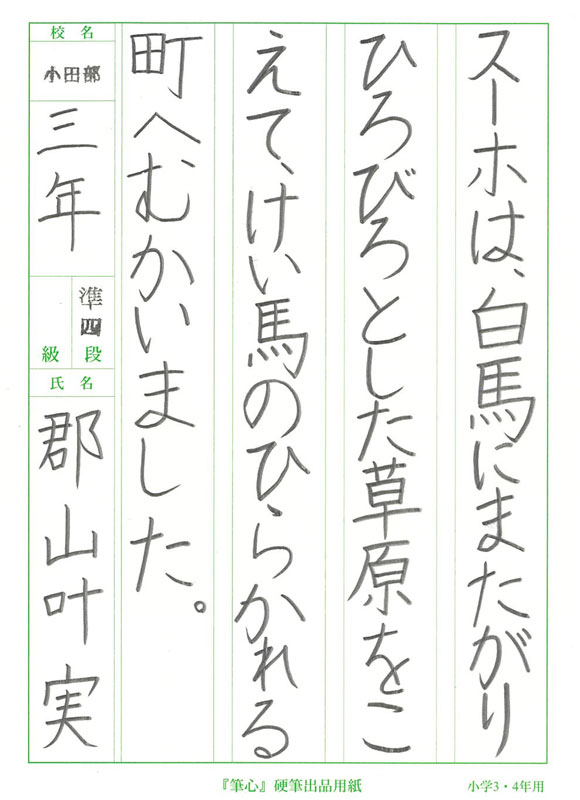 スーホは、白馬にまたがり
ひろびろとした草原をこ
えて、けい馬のひらかれる
町へむかいました。
校名
小田部
三年
準四段
級
氏名
郡山叶実
『筆心』硬筆出品用紙
小学3・4年用